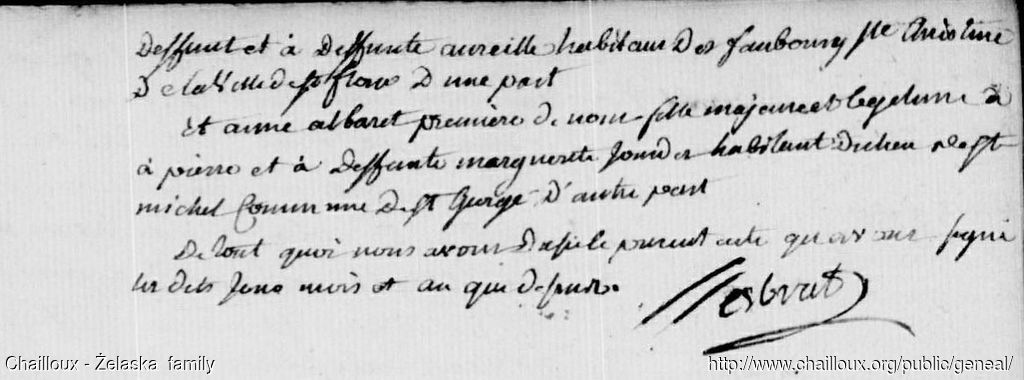 Deffunt et à Deffunte aureille habitant Des faubourg Ste Christine
De la Ville de st flour D'une part
Et anne albaret première de nom fille majeure et legitime à
à pierre et à deffunte marguerite habitant du lieu de st
michel Commune De st George D'autre part
De tout quoi nous avons le present acte qu'avons signé
les dits Jour mois et an que dessus.
Chailloux - Żelaska family
http://www.chailloux.org/public/geneal/